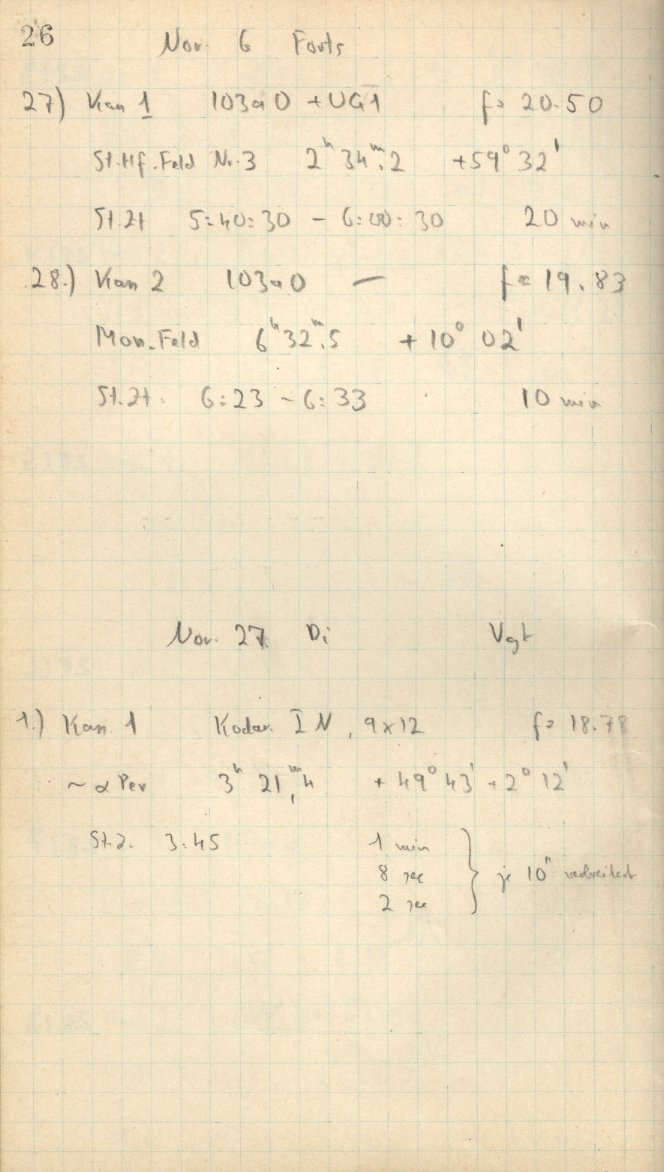 26
Nov. 6 Forts
27) Kam 1 103aO + UG1 f= 20.50
St.Hf.Feld Nr.3 2ʰ 34ᵐ.2 +59° 32'
St.Zt 5:40:30 – 6:00:30 20 min
28.) Kam 2 103aO — f= 19.83
Mon.Feld 6ʰ 32ᵐ.5 + 10° 02'
St.Zt. 6:23 – 6:33 10 min
Nov. 27. Di Vgt
1.) Kam. 1 Kodar. I N, 9x12 f= 18.78
~ α Per 3ʰ 21ᵐ,4 + 49° 43' + 2° 12'
St.Z. 3:45 1 min
8 sec } je 10" verbreitert
2 sec